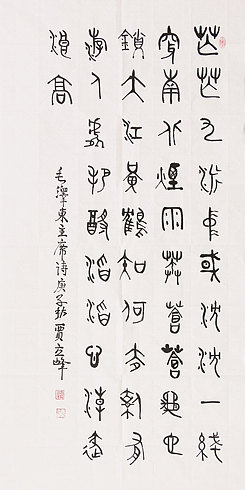 芒芒九派中或沈沈一綫
穿南北煙雨莽蒼蒼龜也
鎖大江黃鶴知何去剩有
游人處把酹滔滔心淖逐
浪高
毛澤東主席詩庚子賈立峰